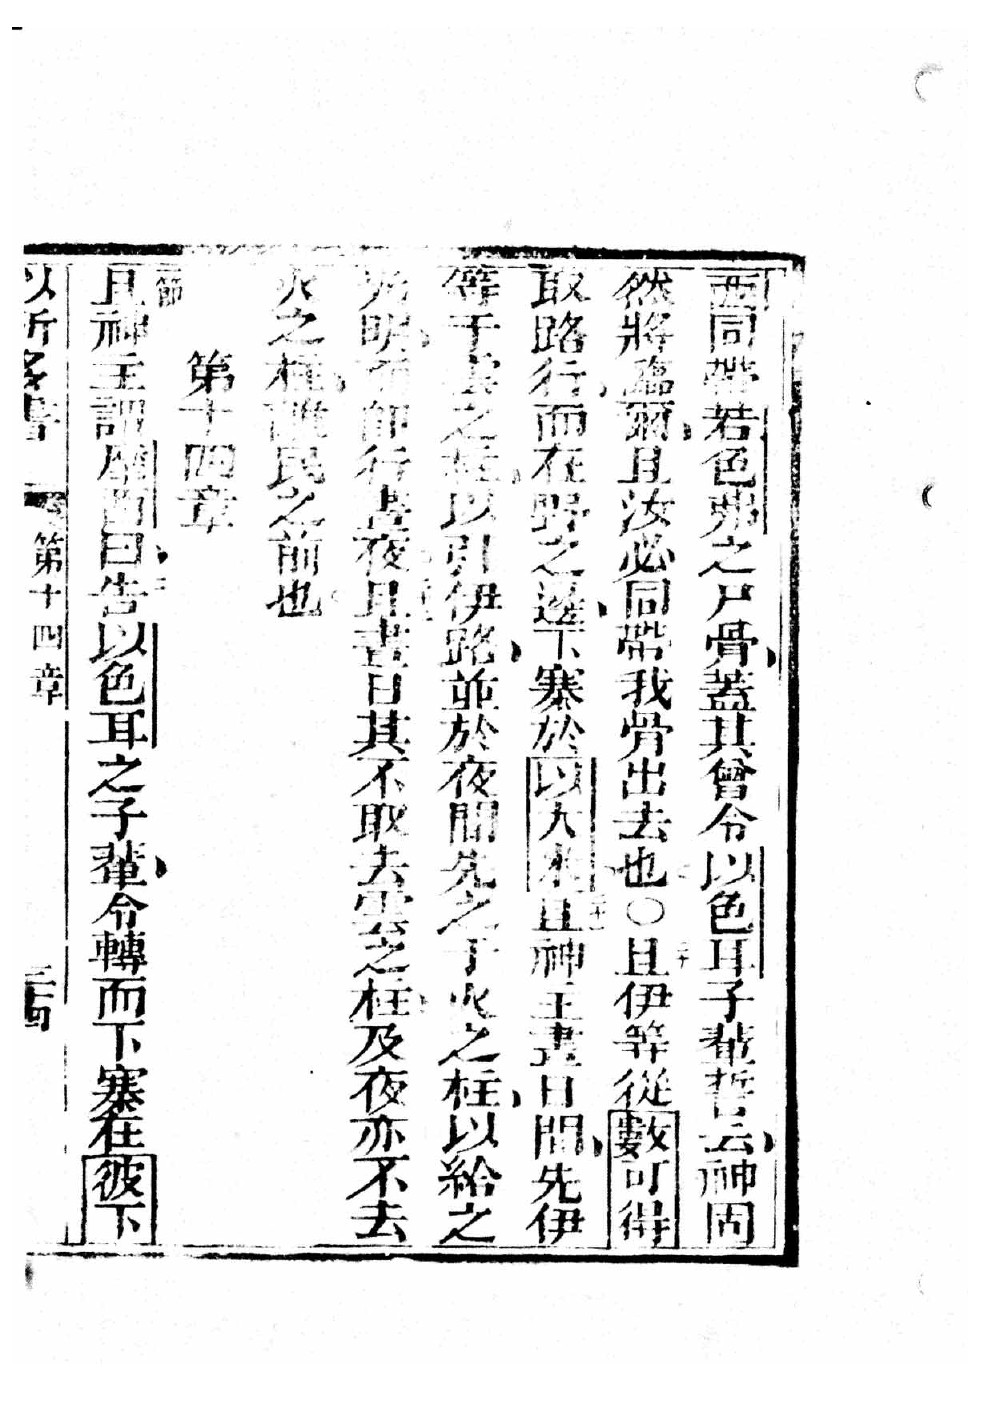 西同帶若色弗之尸骨蓋其曾令以色耳子輩誓云神固
然將臨爾且汝必同帶我骨出去也○且伊等從數可得
取路行而在野之邊下寨於以大水且神主晝日間先伊
等于雲之柱以引伊路並於夜間先之于火之柱以給之
光明而即行晝夜且晝日其不取去雲之柱及夜亦不去
火之柱離民之前也
第十四章
節
且神主謂摩西曰告以色耳之子輩令轉而下寨在彼下
以所多書
第十四章